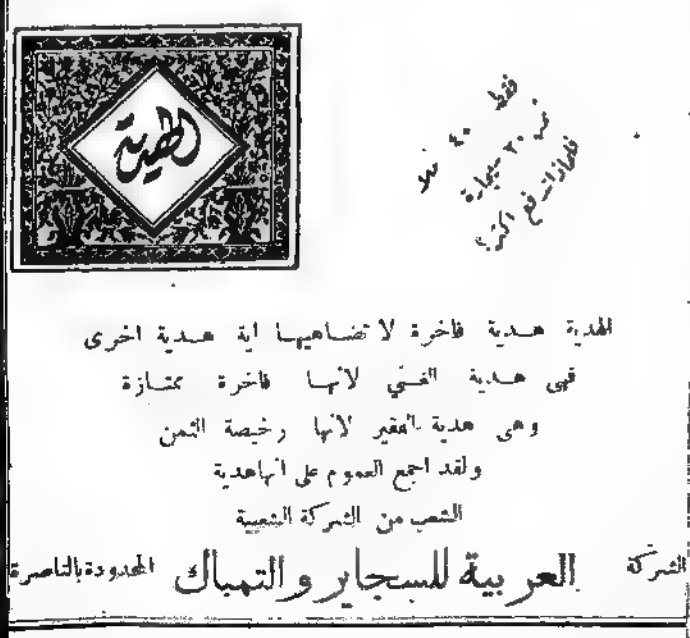 الهدية
فقط ٤٠ ملا
ثمن ٢٠ سيجارة
فلماذا تدفع اكثر
الهدية هدية فاخرة لا تضاهيها اية هدية اخرى
فهى هدية الغني لأنها فاخرة ممتازة
وهى هدية الفقير لأنها رخيصة الثمن
ولقد اجمع العموم على انها هدية
الشعب من الشركة الشعبية
الشركة العربية للسجاير و التمباك المحدودة بالناصرة